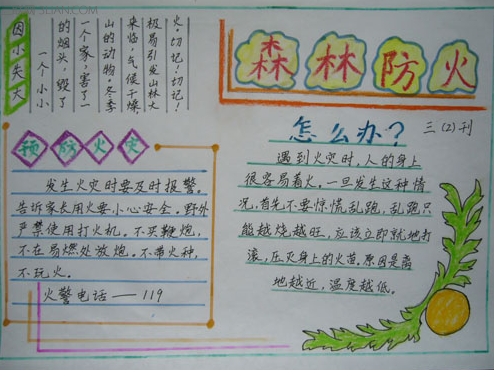 因小失大
一个小小
的烟头,毁了
一个家,害了一
山的动物。冬季
来临,气候干燥
极易引发山林大
火。切记!切记!
森林防火
三(2)刊
预防火灾
发生火灾时要及时报警。
告诉家长用火要小心安全。野外
严禁使用打火机。不买鞭炮,
不在易燃处放炮。不带火种,
不玩火。
火警电话——119
怎么办?
遇到火灾时,人的身上
很容易着火。一旦发生这种情
况,首先不要惊慌乱跑,乱跑只
能越烧越旺,应该立即就地打
滚,压灭身上的火苗,原因是离
地越近,温度越低。